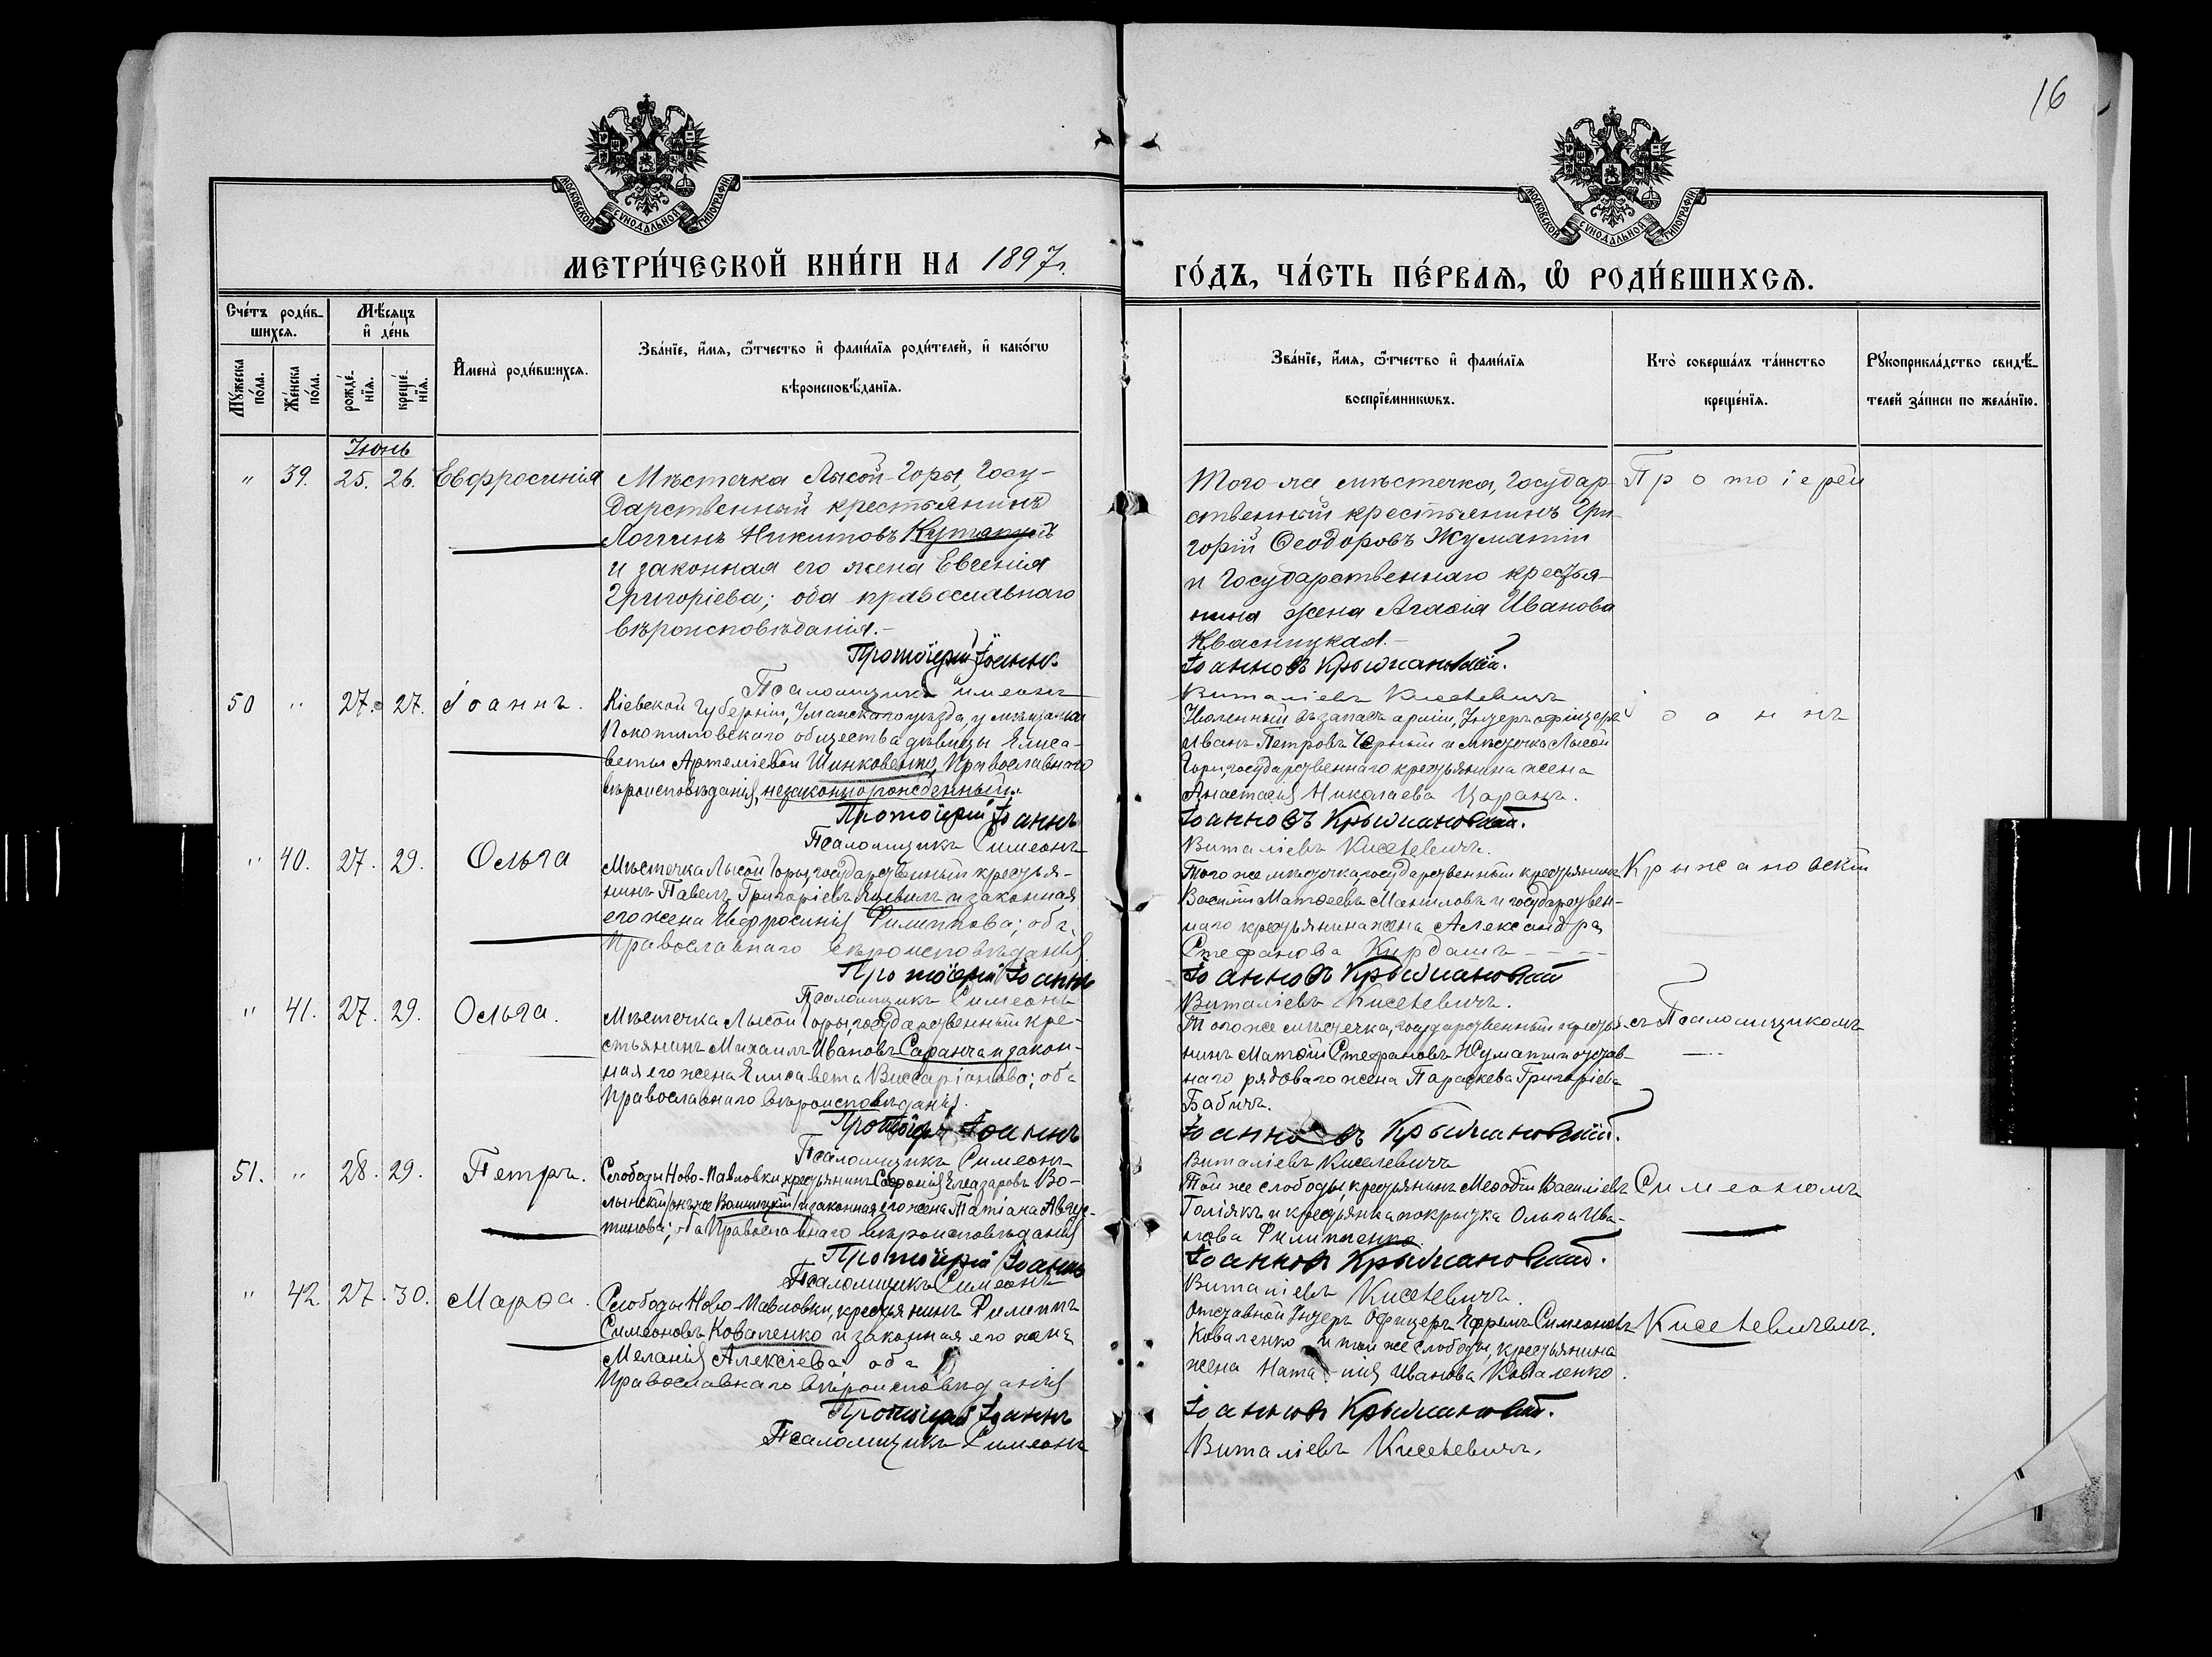 16
МОСКОВСКОЙ СУНОДАЛЬНОЙ ТИПОГРАФІИ
МОСКОВСКОЙ СУНОДАЛЬНОЙ ТИПОГРАФІИ
МЕТРИ́ЧЕСКОЙ КНИ́ГИ НА 1897 г.
ГО́ДЪ, ЧА́СТЬ ПЕ́РВАЯ, Ѡ РОДИ́ВШИХСѦ.
Сче́тъ роди́в-
шихся.
Мѣсяцъ
и҆ де́нь
Мꙋ́жеска по́ла.
Же́нска по́ла.
рожде́-нїя.
креще́-нїя.
И҆мена̀ роди́вшихся.
Зва́нїе, и҆́мя, ѻ҆́тчество и҆ фами́лїя роди́телей, и҆ како́гѡ
вѣроисповѣ́данїя.
Зва́нїе, и҆́мя, ѻ҆́тчество и҆ фами́лїя
воспрїе́мникѡвъ.
Кто̀ соверша́лъ та́инство
креще́нїя.
Рꙋкоприкла́дство свидѣ́-
телей за́писи по жела́нїю.
Іюнь
" 39. 25. 26. Евфросинія
Мѣстечка Лысой-Горы, Госу-
дарственный крестьянинъ
Логгинъ Никитовъ
и законная его жена Евгенія
Григоріева; оба православнаго
вѣроисповѣданія.-
Протоіерей Іоаннъ
Псаломщикъ Симеонъ
Того-же мѣстечка, Государ-
ственный крестьянинъ Гри-
горій Ѳеодоровъ Жуматій
и Государственнаго крестья-
нина жена Агаѳія Иванова
Квасницкая.-
Іоанновъ Крыжановскій.
Виталіевъ Киселевичъ
Протоіерей
50 " 27. 27. Іоаннъ.
Кіевской Губерніи, Уманскаго уѣзда, у мѣщанки
Покотиловскаго общества дѣвицы Елиса-
веты Артеміевой Шинковенко, Православнаго
вѣроисповѣданія, незаконнорожденный.
Протоіерей Іоаннъ
Псаломщикъ Симеонъ
Уволенный въ запасъ арміи, Унтеръ-офицеръ
Иванъ Петровъ Черный и мѣстечка Лысой
Горы, государственнаго крестьянина жена
Анастасія Николаева Царанъ.
Іоанновъ Крыжановскій.
Виталіевъ Киселевичъ.
Іоаннъ
" 40. 27. 29. Ольга
Мѣстечка Лысой Горы, государственный крестья-
нинъ Павелъ Григоріевъ и законная
его жена Евфросинія Филиппова; оба
Православнаго вѣроисповѣданія.
Протоіерей Іоаннъ
Псаломщикъ Симеонъ
Того же мѣстечка государственный крестьянинъ
Василій Матѳеевъ Маниловъ и государствен-
наго крестьянина жена Александра
Стефанова Кирдашъ - - - -
Іоанновъ Крыжановскій
Виталіевъ Киселевичъ.
Крыжановскій
" 41. 27. 29. Ольга.
Мѣстечка Лысой Горы, государственный кре-
стьянинъ Михаилъ Ивановъ Саранча и закон-
ная его жена Елисавета Виссаріонова; оба
Православнаго вѣроисповѣданія.
Протоіерей Іоаннъ
Псаломщикъ Симеонъ
Того же мѣстечка, государственный крестья-
нинъ Матѳій Стефановъ Жуматій и отстав-
наго рядоваго жена Параскева Григоріева
Бабичъ.
Іоанновъ Крыжановскій.
Виталіевъ Киселевичъ
съ Псаломщикомъ
51. " 28. 29. Петръ.
Слободы Ново-Павловки, крестьянинъ Софоній Елеазаровъ Во-
лынскій онъ же и законная его жена Татіана Авгус-
тинова; оба Православнаго вѣроисповѣданія
Протоіерей Іоаннъ
Псаломщикъ Симеонъ
Той же слободы, крестьянинъ Меѳодій Василіевъ
Голіякъ и крестьянка Ольга Ива-
нова Филипченко.
Іоанновъ Крыжановскій.
Виталіевъ Киселевичъ.
Симеономъ
" 42. 27. 30. Марѳа.
Слободы Ново-Павловки, крестьянинъ Филиппъ
Симеоновъ Коваленко и законная его жена
Меланія Алексіева; оба
Православнаго вѣроисповѣданія
Протоіерей Іоаннъ
Псаломщикъ Симеонъ
Отставной Унтеръ Офицеръ Ефремъ Симеоновъ
Коваленко и той же слободы, крестьянина
жена Наталія Иванова Коваленко.
Іоанновъ Крыжановскій.
Виталіевъ Киселевичъ.
Киселевичемъ.